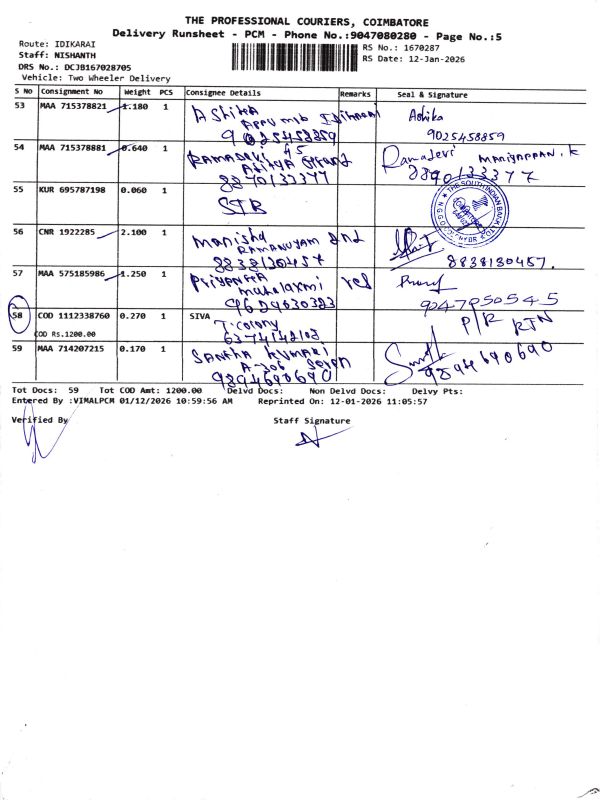 THE PROFESSIONAL COURIERS, COIMBATORE
Delivery Runsheet - PCM - Phone No.:9047080280 - Page No.:5
Route: IDIKARAI
Staff: NISHANTH
DRS No.: DCJB167028705
Vehicle: Two Wheeler Delivery
RS No.: 1670287
RS Date: 12-Jan-2026
S No Consignment No Weight PCS Consignee Details Remarks Seal & Signature
53 MAA 715378821 1.180 1 Ashika Ashika
9025458859 9025458859
54 MAA 715378881 0.640 1 Ramadevi Ramadevi MANIYAPPAN. K
8890133377 8890133377
55 KUR 695787198 0.060 1 SIB
THE SOUTH INDIAN BANK LTD
56 CNR 1922285 2.100 1 Manisha
RAMANUYAM
8838130457 8838130457.
57 MAA 575185986 1.250 1 Priyanka red
Mahalaxmi
9629030323 9047050545
58 COD 1112338760 0.270 1 SIVA P/R RTN
T. colony
COD Rs.1200.00
59 MAA 714207215 0.170 1 SANTHA KUMARI
9894690690 9894690690
Tot Docs: 59 Tot COD Amt: 1200.00 Delvd Docs: Non Delvd Docs: Delvy Pts:
Entered By :VIMALPCM 01/12/2026 10:59:56 AM Reprinted On: 12-01-2026 11:05:57
Verified By Staff Signature